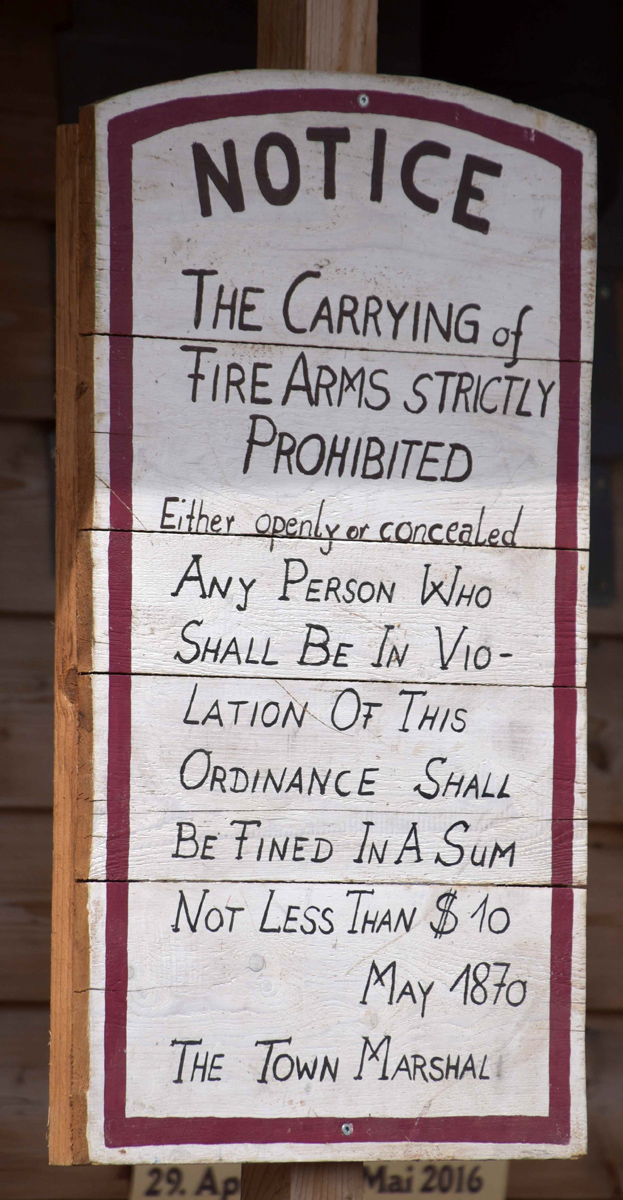 NOTICE
THE CARRYING of
FIRE ARMS STRICTLY
PROHIBITED
Either openly or concealed
ANY PERSON WHO
SHALL BE IN VIO-
LATION OF THIS
ORDINANCE SHALL
BE FINED IN A SUM
NOT LESS THAN $10
MAY 1870
THE TOWN MARSHAL
29. Ap Mai 2016